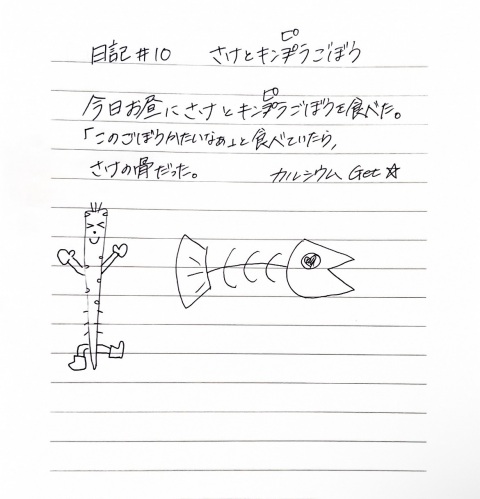 日記 #10 さけとキンピラごぼう
今日お昼にさけとキンピラごぼうを食べた。
「このごぼうかたいなぁ」と食べていたら,
さけの骨だった。 カルシウム Get☆